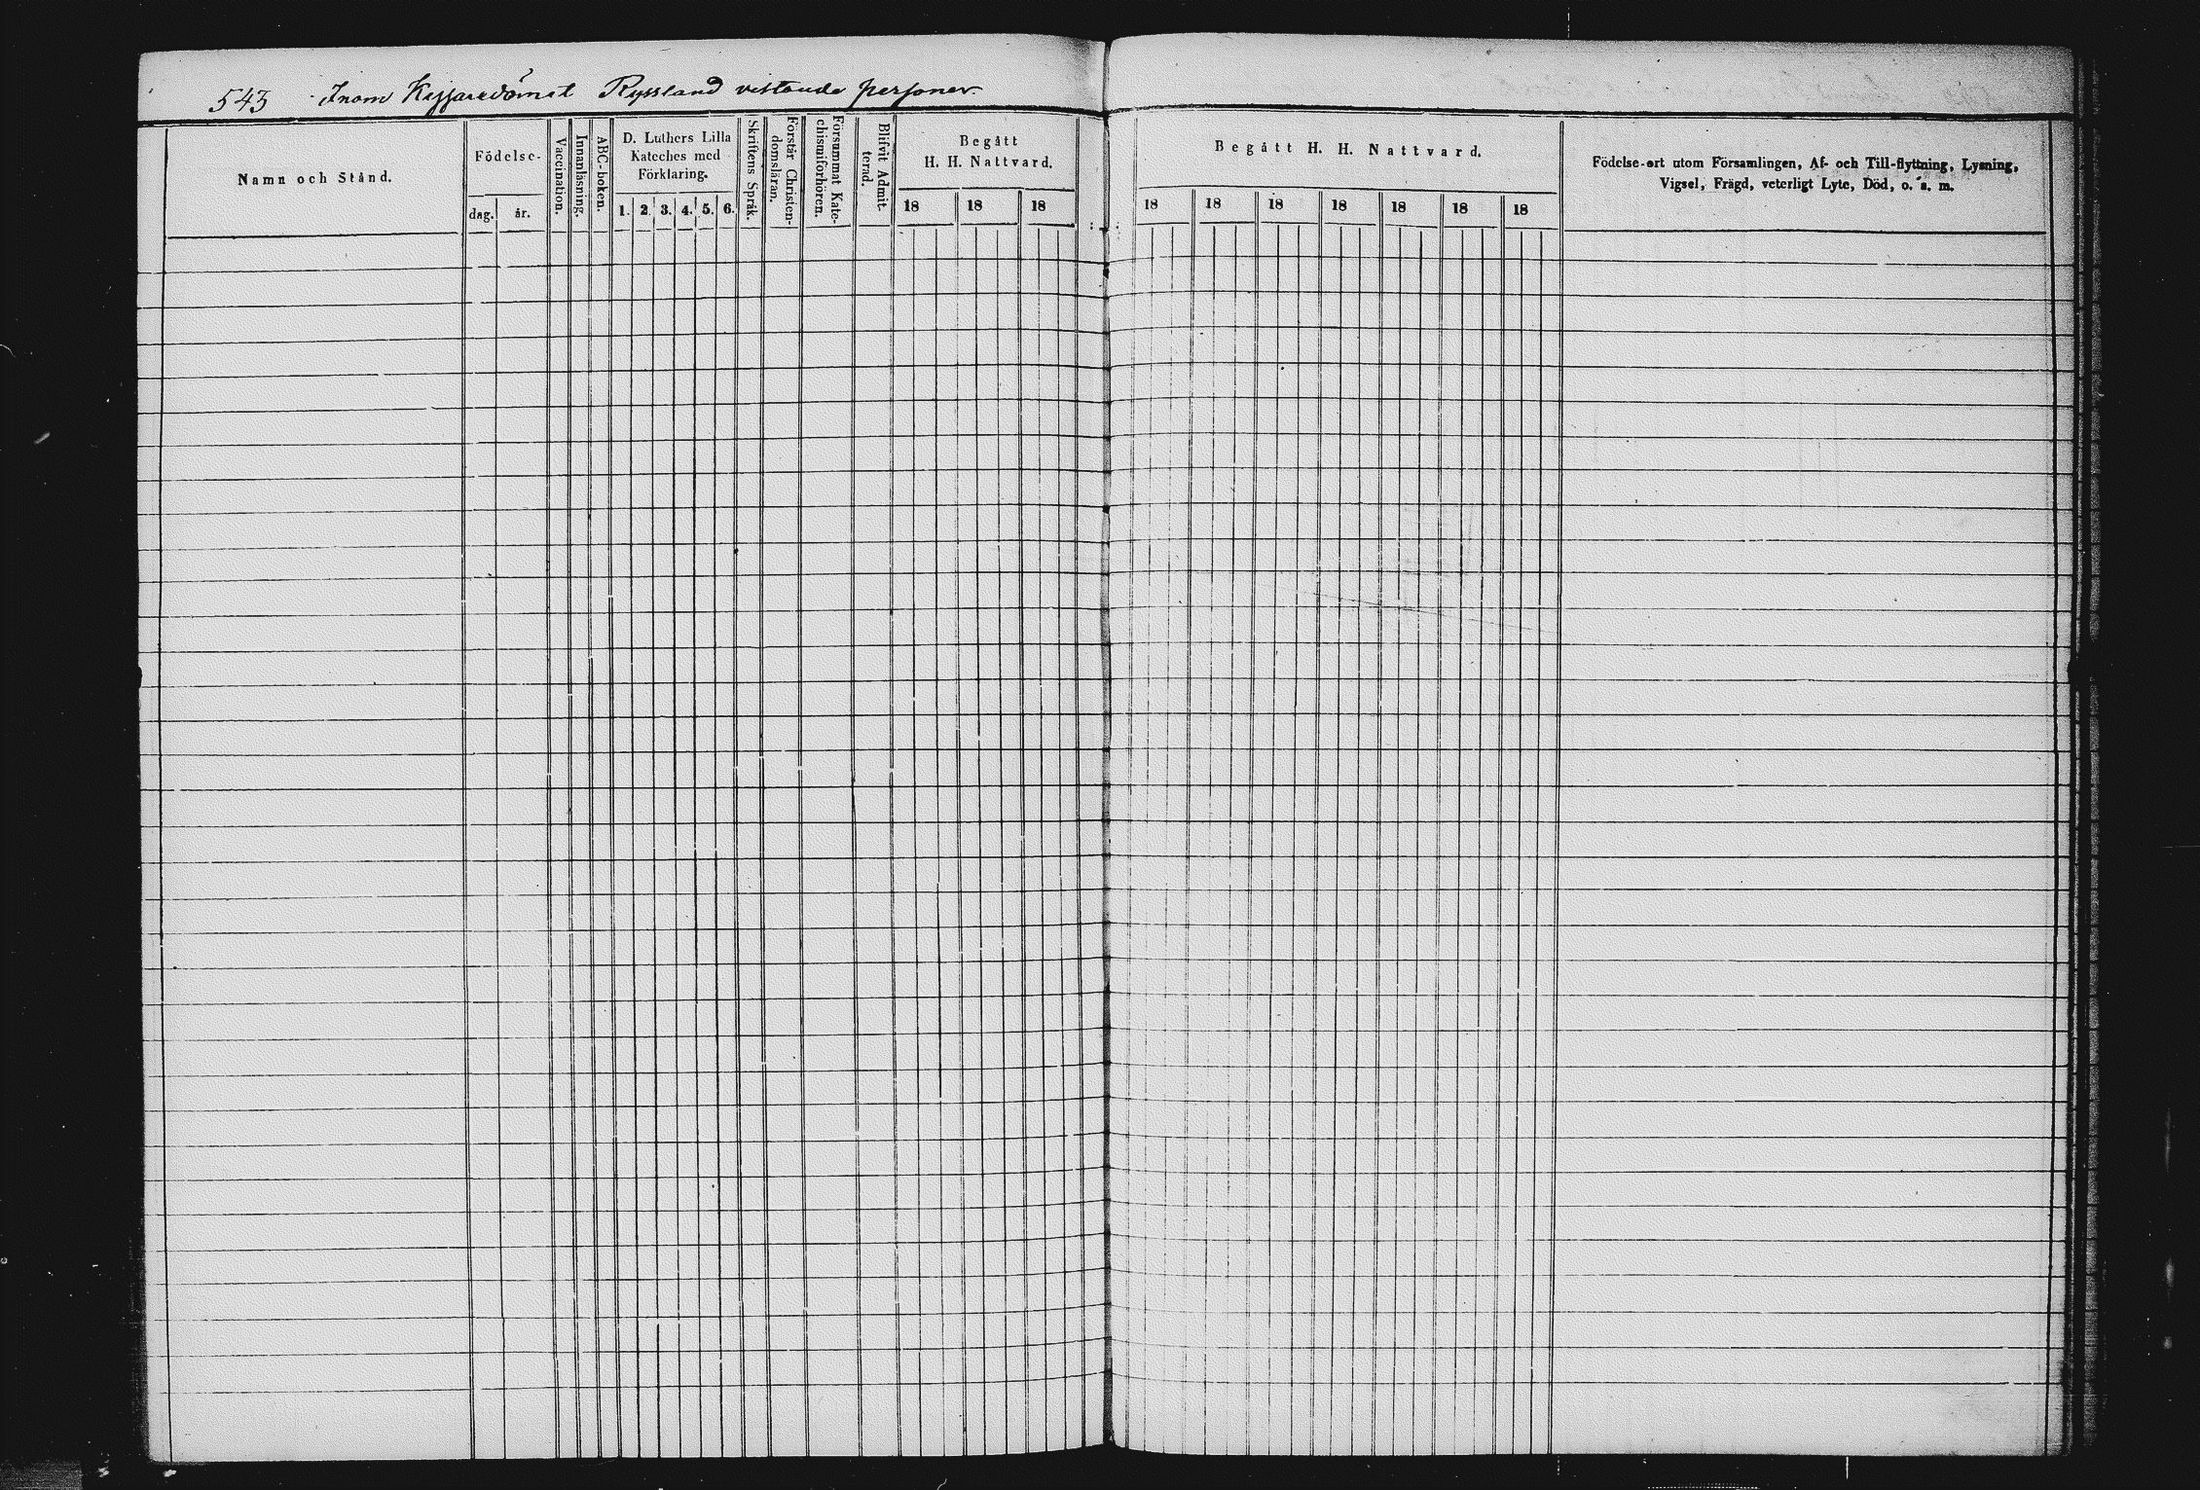 543 Inom Kejsaredömet Ryssland vistande personer
Namn och Stånd.
Födelse-
dag. år.
Vaccination.
Innanläsning.
ABC-boken.
D. Luthers Lilla
Kateches med
Förklaring.
1. 2. 3. 4. 5. 6.
Skriftens Språk.
Förstår Christen-
domsläran.
Försummat Kate-
chismiförhören.
Blifvit Admit-
terad.
Begått
H. H. Nattvard.
18 18 18
Begått H. H. Nattvard.
18 18 18 18 18 18 18
Födelse-ort utom Församlingen, Af- och Till-flyttning, Lysning,
Vigsel, Frägd, veterligt Lyte, Död, o. s. m.